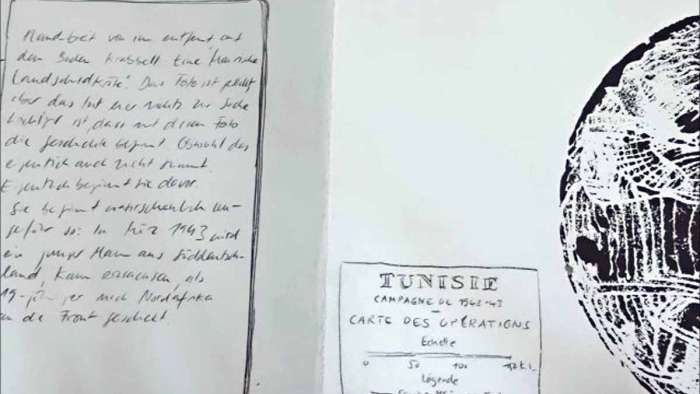 Handbreit von ihm entfernt auf
dem Boden krabbelt. Eine "maurische
Landschildkröte". Das Foto ist
aber das tut hier nichts zur Sache
Wichtiger ist, dass mit diesem Foto
die Geschichte beginnt. Obwohl das
eigentlich auch nicht stimmt.
Eigentlich beginnt sie davor.
Sie beginnt wahrscheinlich un-
gefähr so: Im März 1943 wird
ein junger Mann aus Süddeutsch-
land, kaum erwachsen, als
19-jähriger nach Nordafrika
an die Front geschickt.
TUNISIE
CAMPAGNE DE 1942-43
CARTE DES OPÉRATIONS
Echelle
0 50 100
Légende